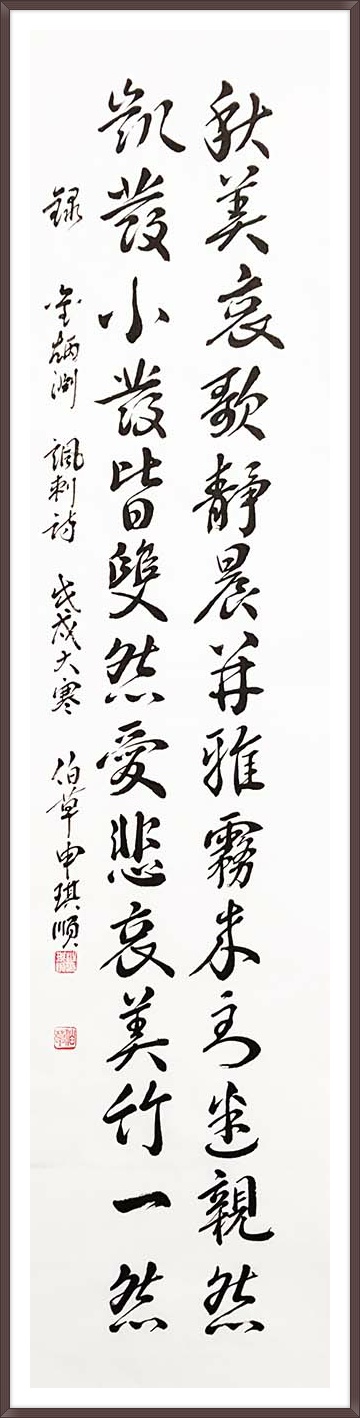 秋美哀歌靜晨并雅霧来到迷親然
凱發小發皆雙然愛悲哀美竹一然
録 金炳淵 諷刺詩 戊戌大寒 伯草申琪順